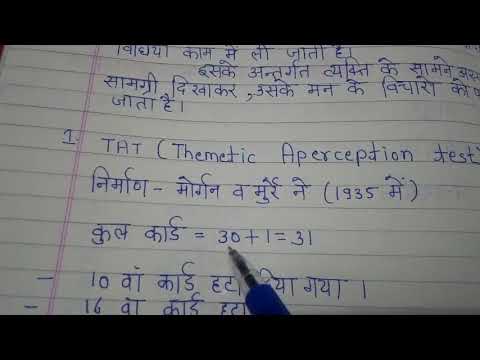 विधियाँ काम में ली जाती है।
इसके अन्तर्गत व्यक्ति के सामने
सामग्री दिखाकर, उसके मन के विचारो को
जाता है।
1. TAT (Themetic Aperception test
निर्माण - मोर्गन व मुर्रे ने (1935 में)
कुल कार्ड = 30+1=31
- 10 वाँ कार्ड हटा दिया गया ।
- 16 वा कार्ड हटा